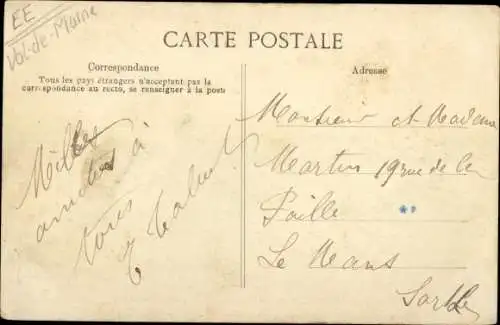 EE
Val-de-Marne
CARTE POSTALE
Correspondance
Tous les pays étrangers n'acceptent pas la
correspondance au recto, se renseigner à la poste
Milles
amitiés à
tous
Adresse
Monsieur et Madame
Martin 19 rue de la
Paille
Le Mans
Sarthe